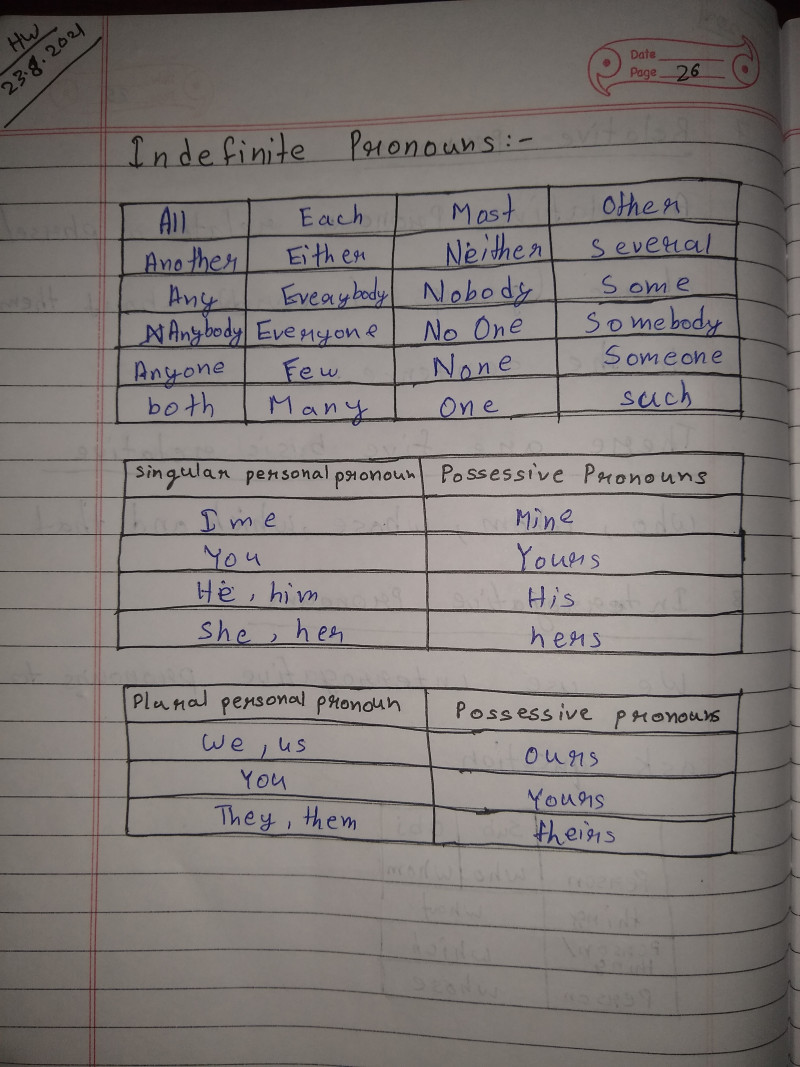 HW
23.8.2021
Date
Page 26
Indefinite Pronouns:-
All Each Most Other
Another Either Neither Several
Any Everybody Nobody Some
Anybody Everyone No One Somebody
Anyone Few None Someone
both Many One such
Singular personal pronoun Possessive Pronouns
I me Mine
You Yours
He, him His
She, her hers
Plural personal pronoun Possessive pronouns
We, us ours
You Yours
They, them theirs